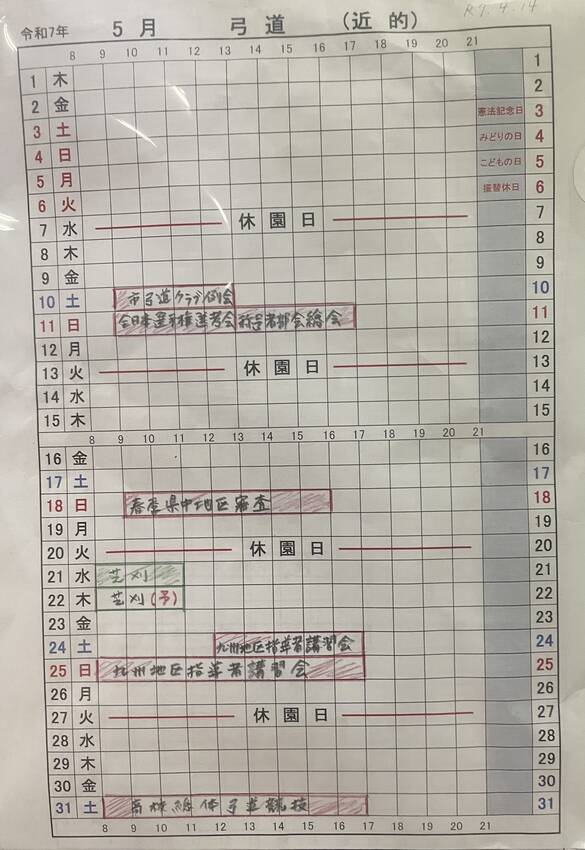 R7.4.14
令和7年 5月 弓道 (近的)
8 9 10 11 12 13 14 15 16 17 18 19 20 21
1 木 1
2 金 2
3 土 憲法記念日 3
4 日 みどりの日 4
5 月 こどもの日 5
6 火 振替休日 6
7 水 休園日 7
8 木 8
9 金 9
10 土 市弓道クラブ例会 10
11 日 全日本選手権選考会 称号者部会総会 11
12 月 12
13 火 休園日 13
14 水 14
15 木 15
8 9 10 11 12 13 14 15 16 17 18 19 20 21
16 金 16
17 土 17
18 日 春季県中地区審査 18
19 月 19
20 火 休園日 20
21 水 芝刈 21
22 木 芝刈(予) 22
23 金 23
24 土 九州地区指導者講習会 24
25 日 九州地区指導者講習会 25
26 月 26
27 火 休園日 27
28 水 28
29 木 29
30 金 30
31 土 高校総体弓道競技 31
8 9 10 11 12 13 14 15 16 17 18 19 20 21